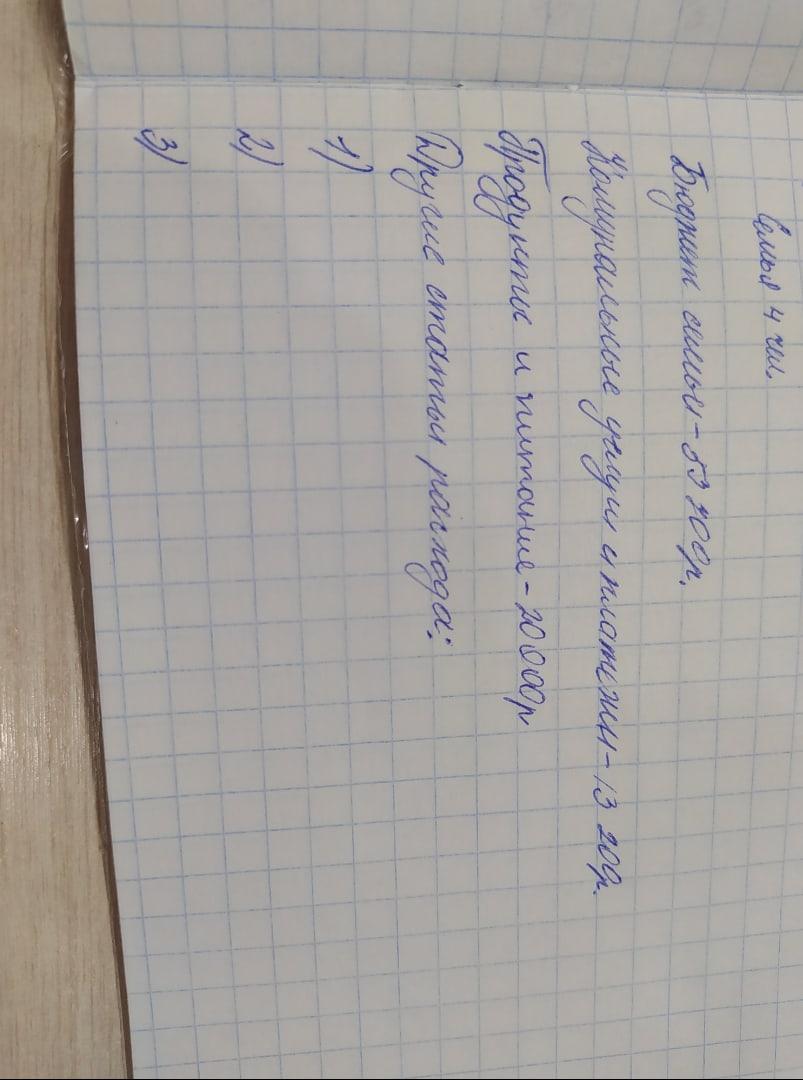 Семья 4 чел.
Бюджет семьи - 53 700р.
Комунальные услуги и платежи - 13 200р.
Продукты и питание - 20 000р
Другие статьи расхода:
1)
2)
3)